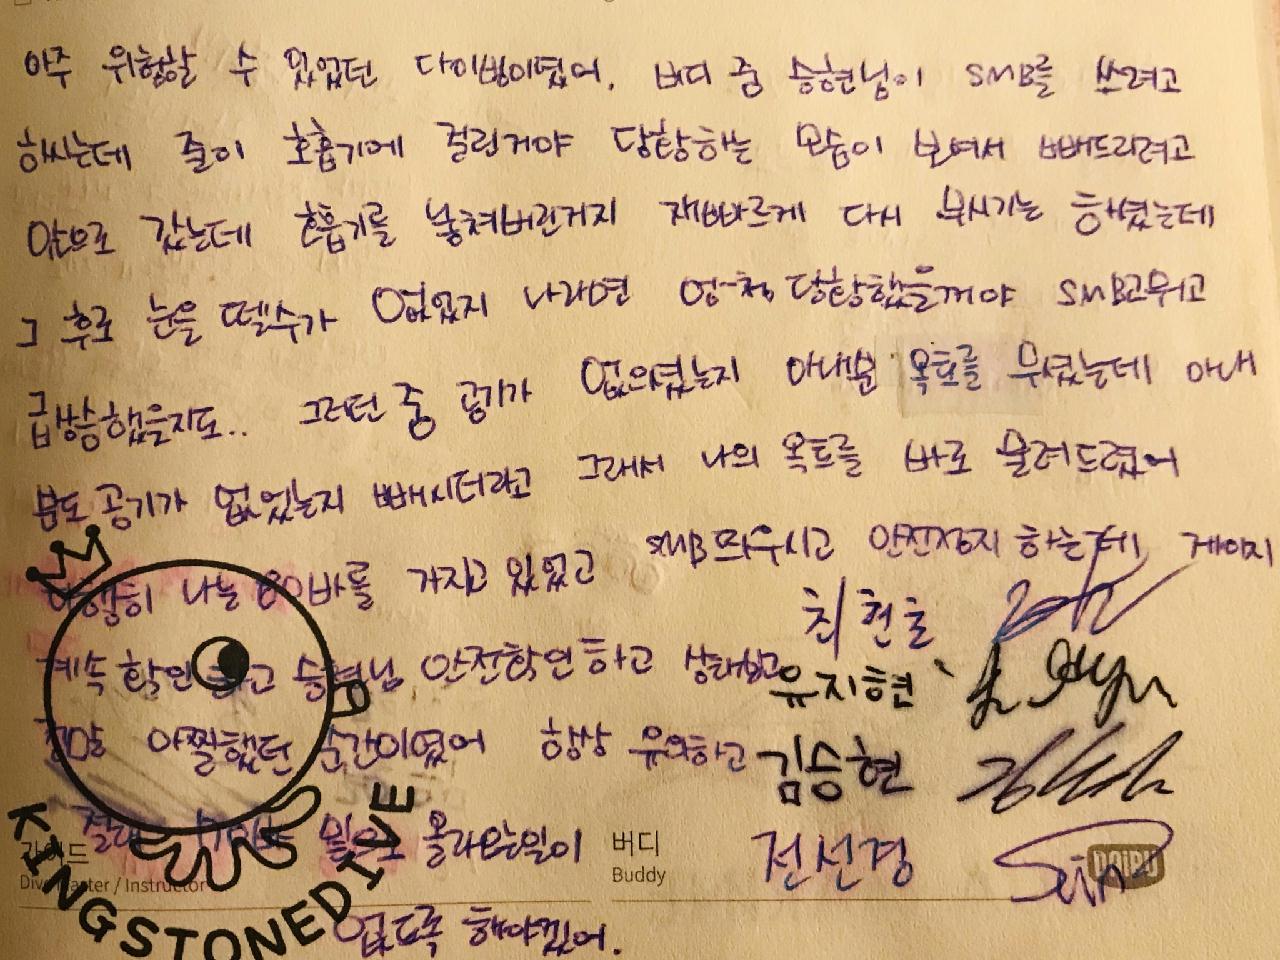 아주 위험할 수 있었던 다이빙이였어. 버디 중 승현님이 SMB를 쓰려고
하시는데 줄이 호흡기에 걸린거야 당황하는 모습이 보여서 빼드리려고
앞으로 갔는데 호흡기를 놓쳐버린거지 재빠르게 다시 무시기는 하셨는데
그 후로 눈을 뗄수가 없었지 나라면 엄청 당황했을꺼야 SMB고뭐고
급상승했을지도.. 그러던 중 공기가 없으셨는지 아내분 옥토를 무셨는데 아내
분도 공기가 없었는지 빼시더라고 그래서 나의 옥토를 바로 물려드렸어
다행히 나는 80바를 가지고 있었고 SMB띄우시고 안전정지 하는데 게이지
계속 확인하고 승현님 안전확인하고 상태보고
정말 아찔했던 순간이였어 항상 유의하고
절대 밑으로 올라오는일이
없도록 해야겠어.
최현호
유지현
김승현
전선경
Sun
가이드
Dive Master / Instructor
버디
Buddy
KINGSTONEDIVE